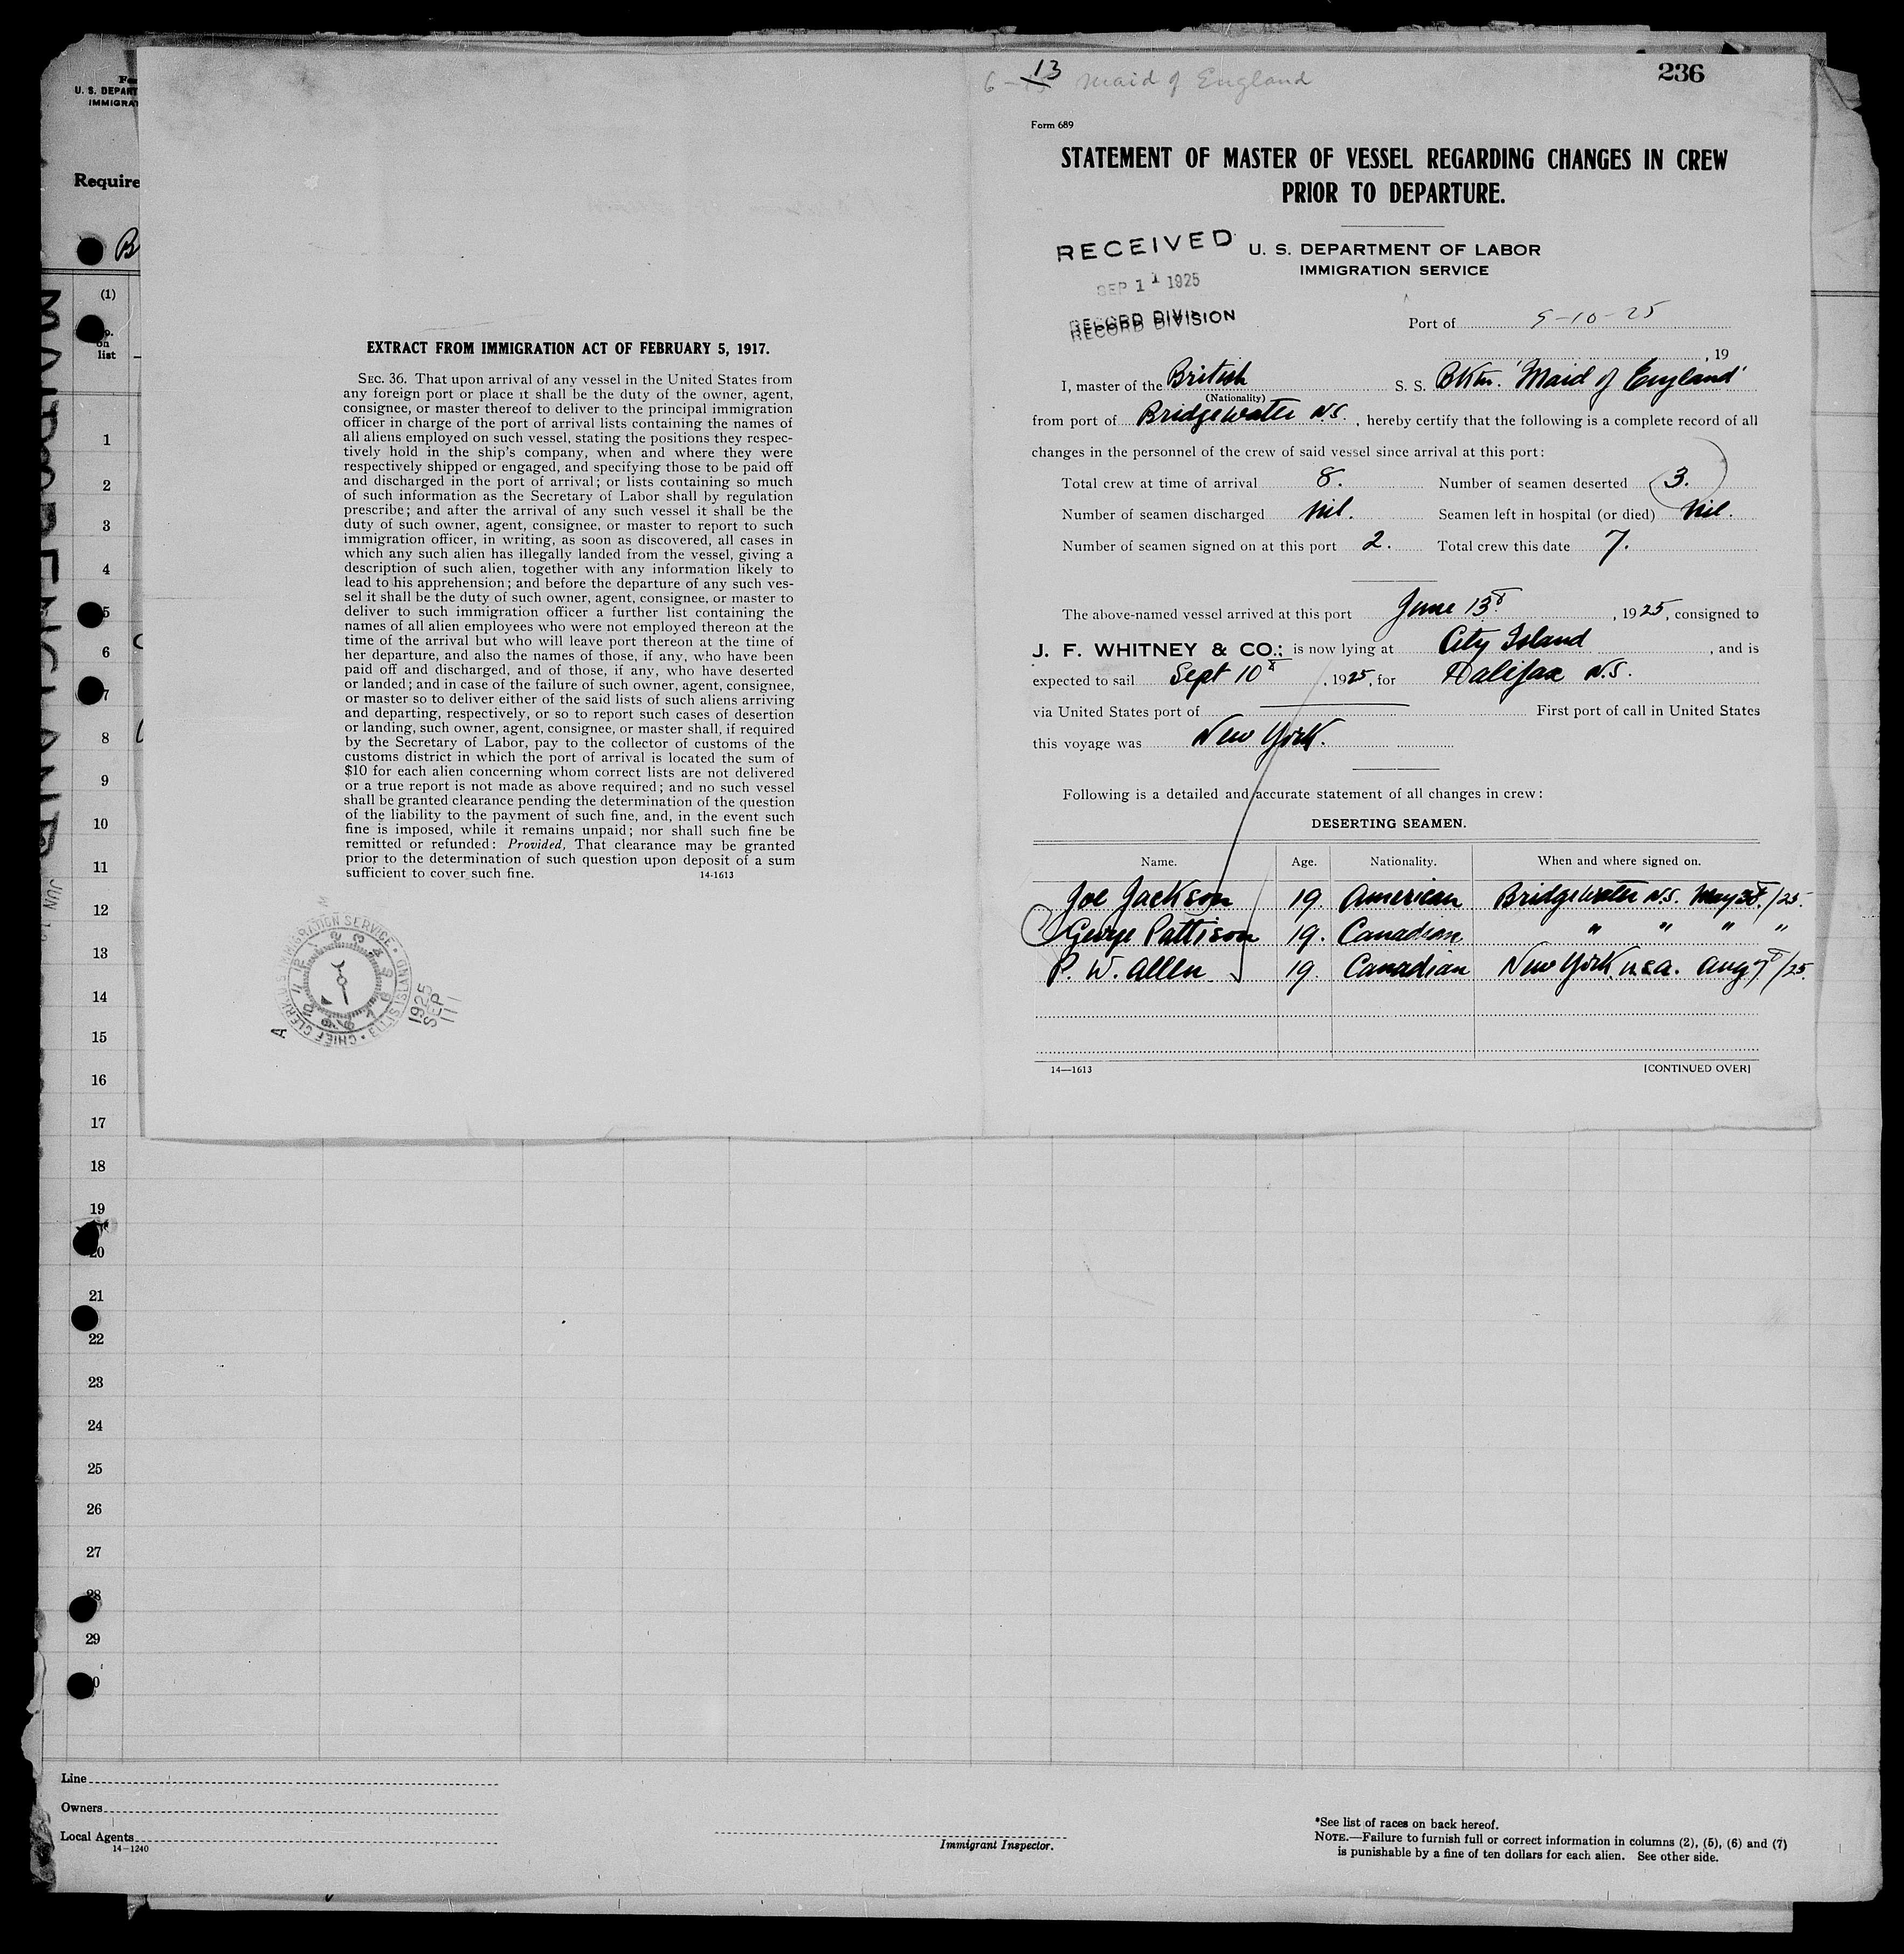 236
6-13 Maid of England
Form 689
STATEMENT OF MASTER OF VESSEL REGARDING CHANGES IN CREW
PRIOR TO DEPARTURE.
RECEIVED
SEP 11 1925
RECORD DIVISION
U. S. DEPARTMENT OF LABOR
IMMIGRATION SERVICE
Port of 9-10-25
, 19
I, master of the British S. S. Bktn. 'Maid of England'
(Nationality)
from port of Bridgewater N.S. , hereby certify that the following is a complete record of all
changes in the personnel of the crew of said vessel since arrival at this port:
Total crew at time of arrival 8. Number of seamen deserted 3.
Number of seamen discharged Nil. Seamen left in hospital (or died) Nil.
Number of seamen signed on at this port 2. Total crew this date 7.
The above-named vessel arrived at this port June 13th , 1925, consigned to
J. F. WHITNEY & CO.; is now lying at City Island , and is
expected to sail Sept 10th , 1925, for Halifax N.S.
via United States port of First port of call in United States
this voyage was New York.
Following is a detailed and accurate statement of all changes in crew:
DESERTING SEAMEN.
Name. Age. Nationality. When and where signed on.
Joe Jackson 19. American Bridgewater N.S. May /25.
George Pattison 19. Canadian " " " "
P. W. Allen 19. Canadian New York U.S.A. Aug 7th/25.
14—1613 [CONTINUED OVER]
EXTRACT FROM IMMIGRATION ACT OF FEBRUARY 5, 1917.
SEC. 36. That upon arrival of any vessel in the United States from
any foreign port or place it shall be the duty of the owner, agent,
consignee, or master thereof to deliver to the principal immigration
officer in charge of the port of arrival lists containing the names of
all aliens employed on such vessel, stating the positions they respec-
tively hold in the ship's company, when and where they were
respectively shipped or engaged, and specifying those to be paid off
and discharged in the port of arrival; or lists containing so much
of such information as the Secretary of Labor shall by regulation
prescribe; and after the arrival of any such vessel it shall be the
duty of such owner, agent, consignee, or master to report to such
immigration officer, in writing, as soon as discovered, all cases in
which any such alien has illegally landed from the vessel, giving a
description of such alien, together with any information likely to
lead to his apprehension; and before the departure of any such ves-
sel it shall be the duty of such owner, agent, consignee, or master to
deliver to such immigration officer a further list containing the
names of all alien employees who were not employed thereon at the
time of the arrival but who will leave port thereon at the time of
her departure, and also the names of those, if any, who have been
paid off and discharged, and of those, if any, who have deserted
or landed; and in case of the failure of such owner, agent, consignee,
or master so to deliver either of the said lists of such aliens arriving
and departing, respectively, or so to report such cases of desertion
or landing, such owner, agent, consignee, or master shall, if required
by the Secretary of Labor, pay to the collector of customs of the
customs district in which the port of arrival is located the sum of
$10 for each alien concerning whom correct lists are not delivered
or a true report is not made as above required; and no such vessel
shall be granted clearance pending the determination of the question
of the liability to the payment of such fine, and, in the event such
fine is imposed, while it remains unpaid; nor shall such fine be
remitted or refunded: Provided, That clearance may be granted
prior to the determination of such question upon deposit of a sum
sufficient to cover such fine. 14-1613
CHIEF CLERK, U.S. IMMIGRATION SERVICE · ELLIS ISLAND
1925
SEP
11
U. S. DEPART
IMMIGRAT
Require
B
MAID OF ENGLAND
JUN
(1)
on
list
1
2
3
4
5
6
7
8
9
10
11
12
13
14
15
16
17
18
19
20
21
22
23
24
25
26
27
28
29
0
Line
Owners
Local Agents
14-1240
Immigrant Inspector.
*See list of races on back hereof.
NOTE.—Failure to furnish full or correct information in columns (2), (5), (6) and (7)
is punishable by a fine of ten dollars for each alien. See other side.